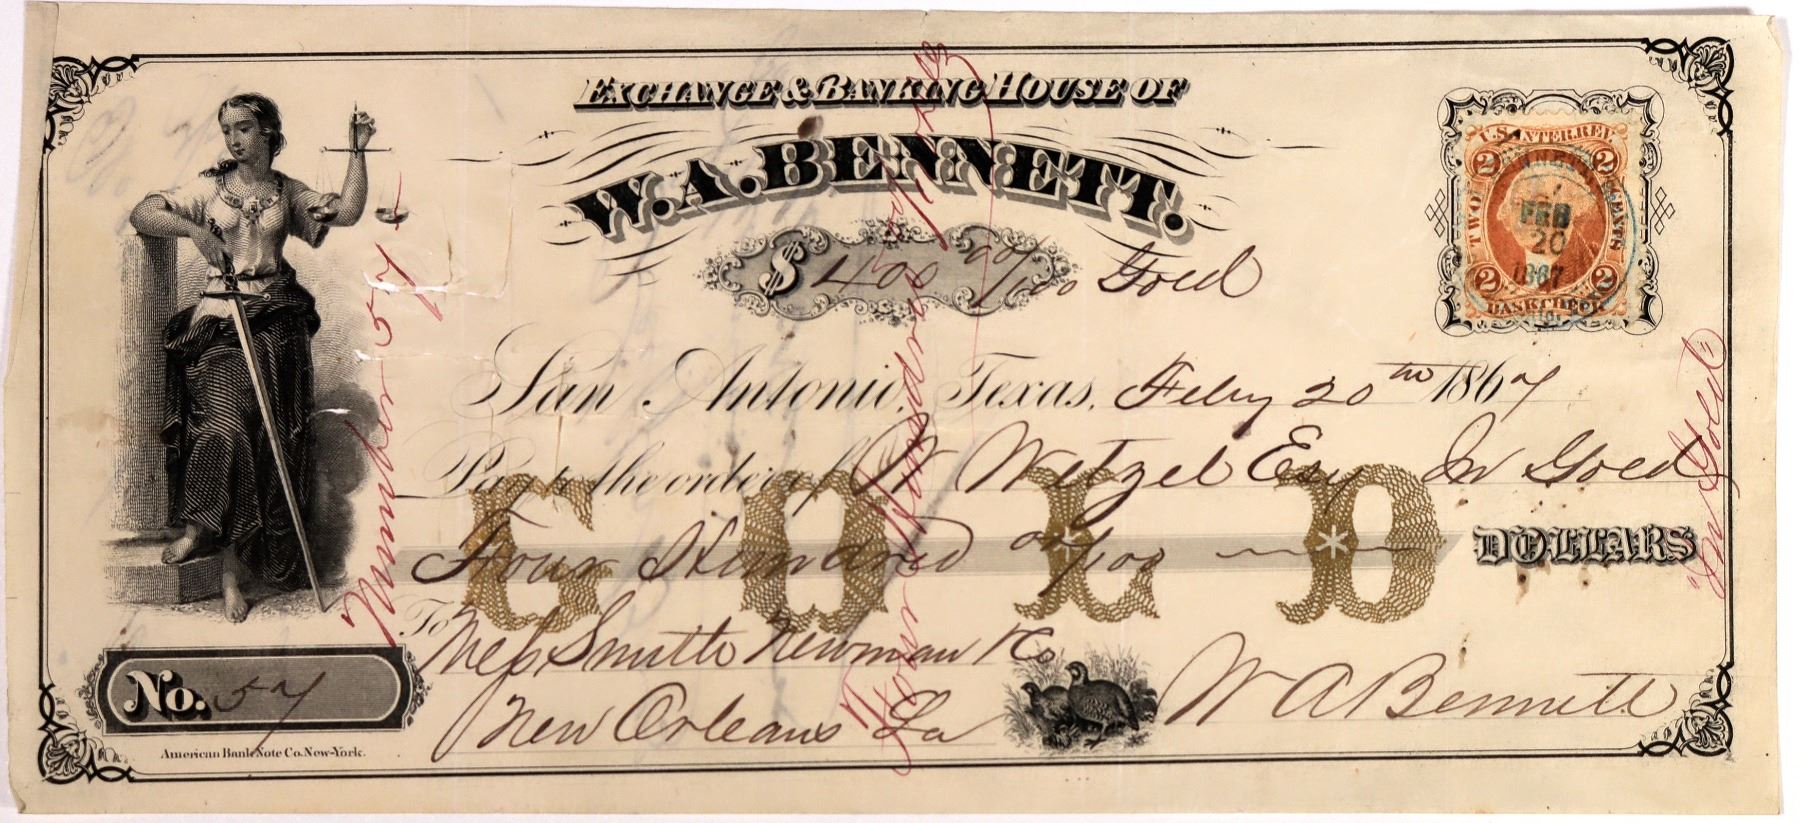 EXCHANGE & BANKING HOUSE OF
W.A. BENNETT.
$ 400 00/100 Gold
U.S. INTER. REV.
2 2
TWO CENTS
FEB
20
1867
2 2
BANK CHECK
San Antonio, Texas, Feby 20th 1867
Pay to the order of W Wetzel Esq In Gold
Four Hundred 00/100 DOLLARS
GOLD
To Mess Smith Newman & Co
New Orleans La W A Bennett
No. 57
American Bank Note Co. New-York.
Number 57
Four Hundred
"In Gold"